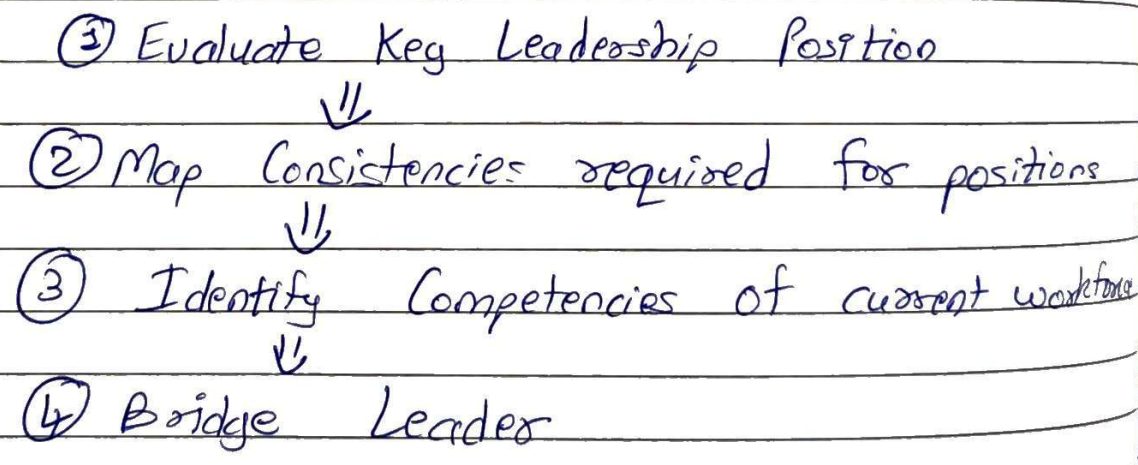 ① Evaluate Key Leadership Position
⇓
② Map Consistencies required for positions
⇓
③ Identify Competencies of current workforce
⇓
④ Bridge Leader